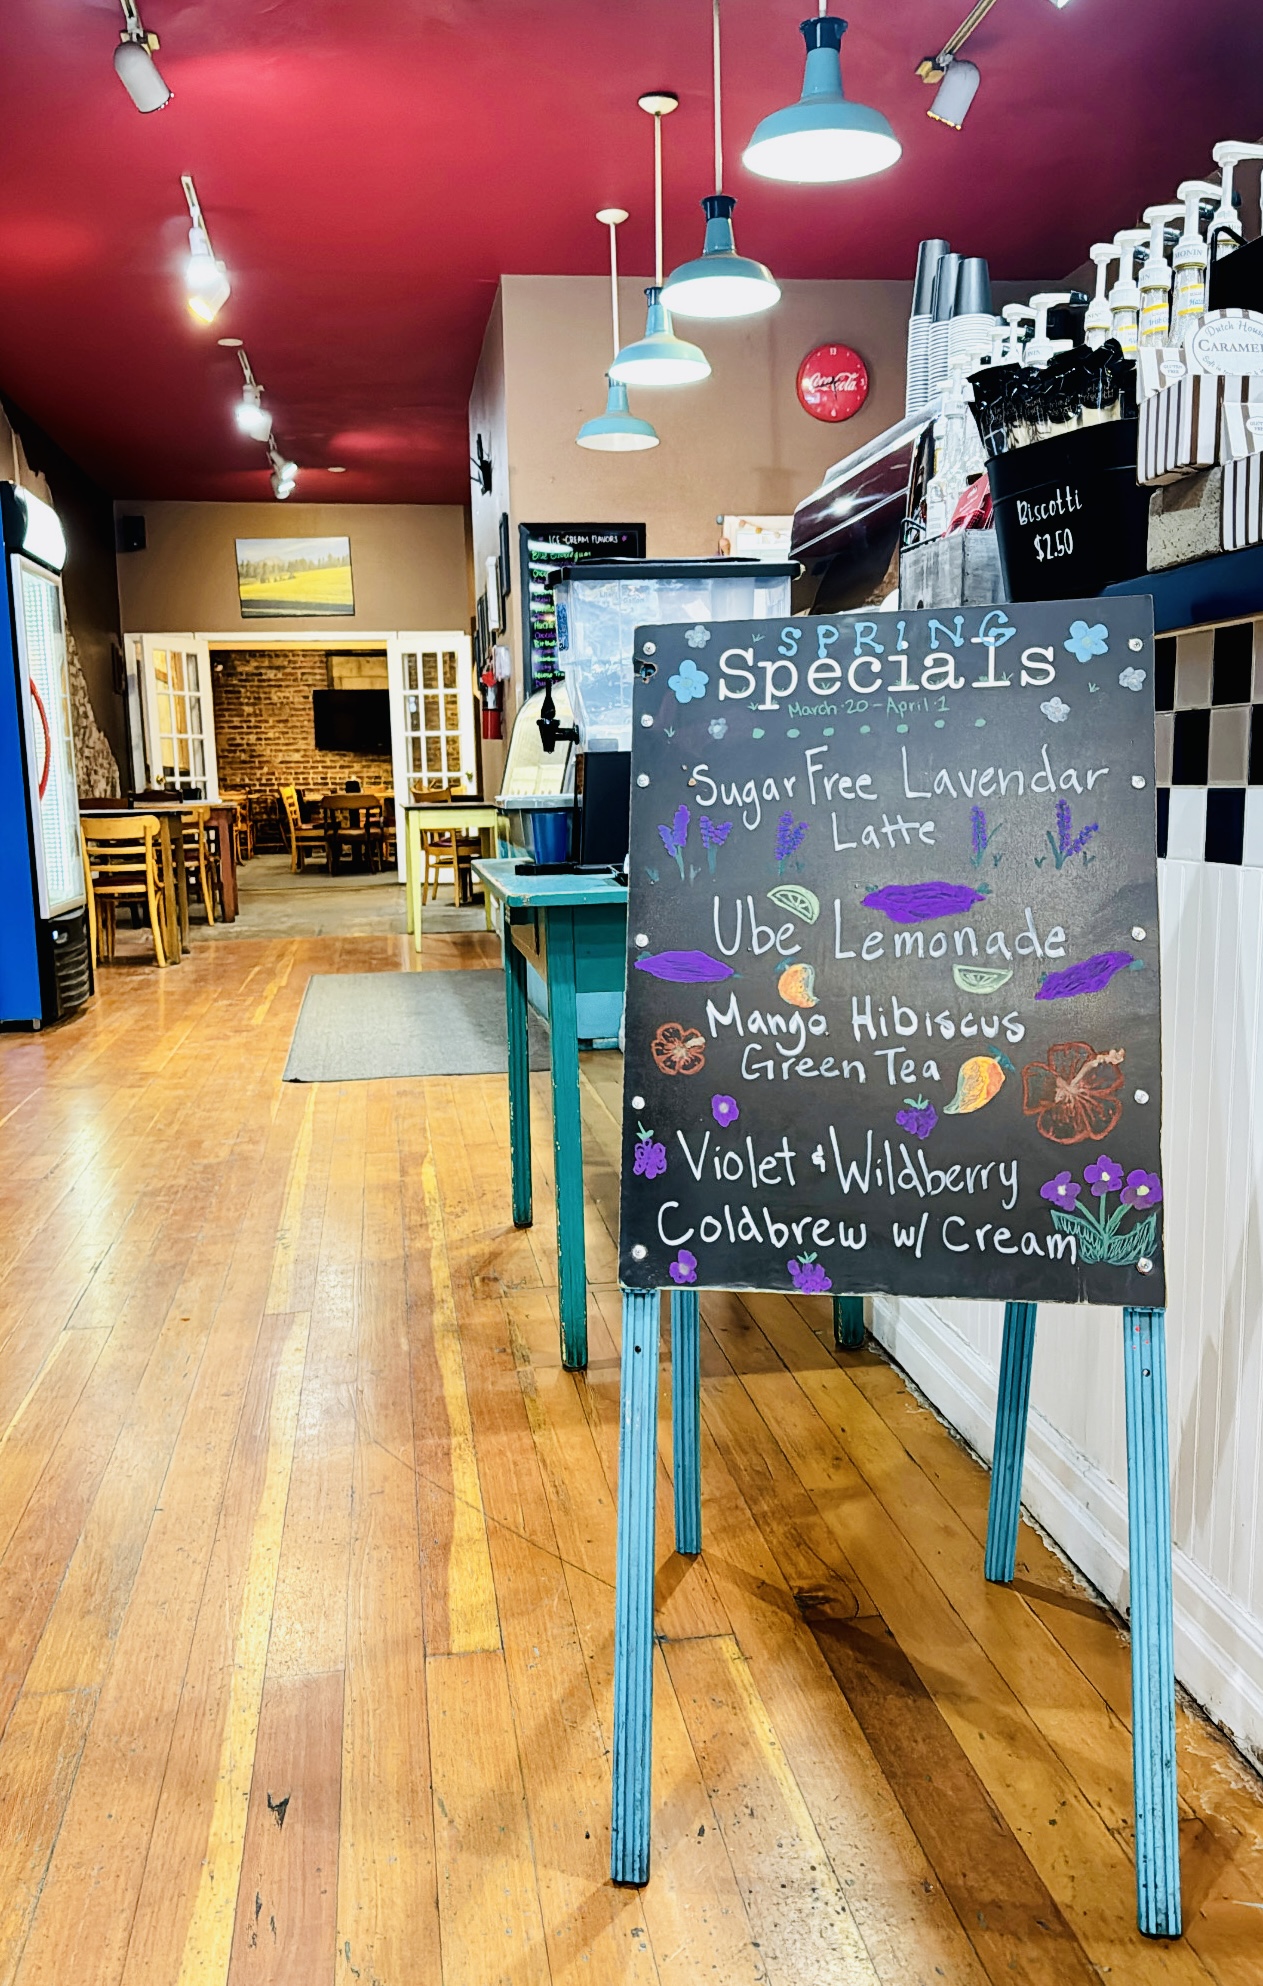 SPRING
Specials
March·20-April·1
Sugar Free Lavendar
Latte
Ube Lemonade
Mango Hibiscus
Green Tea
Violet & Wildberry
Coldbrew w/ Cream
Biscotti
$2.50
Coca-Cola
ICE-CREAM FLAVORS
Dutch House
CARAMEL
MONIN